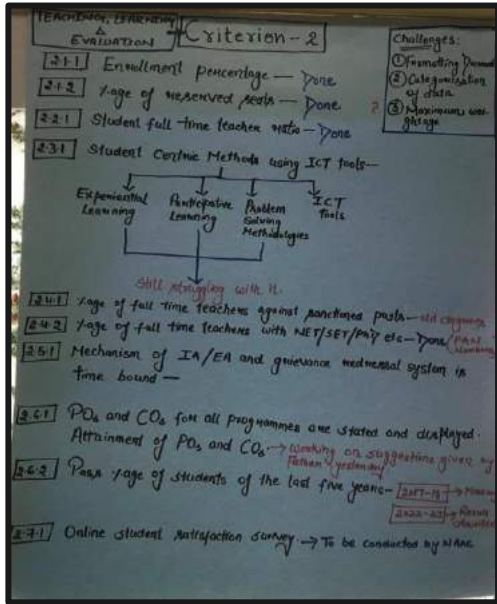 TEACHING, LEARNING
&
EVALUATION
Criterion - 2
Challenges:
① Formatting
② Categorisation
of data
③ Maximum wei-
ghtage
2.1.1 Enrollment percentage — Done
2.1.2 %age of reserved seats — Done ?
2.2.1 Student full time teacher ratio — Done
2.3.1 Student Centric Methods using ICT tools —
Experiential
Learning
Participative
Learning
Problem
Solving
Methodologies
ICT
Tools
Still struggling with it.
2.4.1 %age of full time teachers against sanctioned posts — old
2.4.2 %age of full time teachers with NET/SET/PhD etc — Done/PAN
2.5.1 Mechanism of IA/EA and grievance redressal system is
time bound —
2.6.1 POs and COs for all programmes are stated and displayed.
Attainment of POs and COs → Working on suggestions given by
yesterday
2.6.2 Pass %age of students of the last five years — 2017-18 →
2022-23 → Result
2.7.1 Online student satisfaction survey. → To be conducted by NAAC